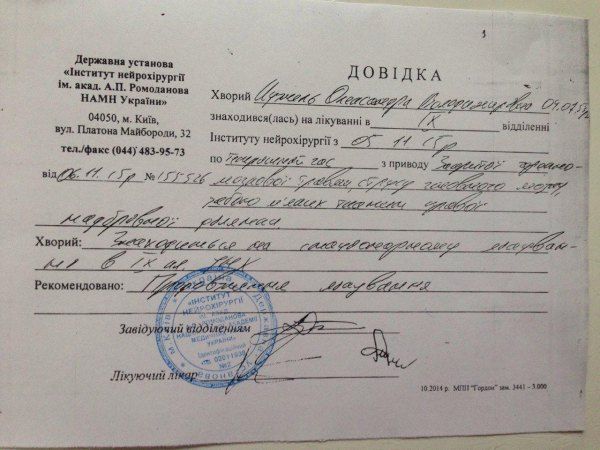 Державна установа
«Інститут нейрохірургії
ім. акад. А.П. Ромоданова
НАМН України»
04050, м. Київ,
вул. Платона Майбороди, 32
тел./факс (044) 483-95-73
від 06.11.15р № 155526
ДОВІДКА
Хворий Олександра Володимирівна
знаходився(лась) на лікуванні в IX відділенні
Інституту нейрохірургії з 05.11.15р
по теперішній час з приводу Закритої черепно-
мозкової травми, струсу головного мозку,
забою м'яких тканин правої
надбрівної ділянки
Хворий: Знаходиться на стаціонарному лікуван-
ні в IX
Рекомендовано: Продовження лікування
Завідуючий відділенням
Лікуючий лікар
«ІНСТИТУТ
НЕЙРОХІРУРГІЇ
ІМ. АКАД.
РОМОДАНОВА
МЕДИЧНИХ
УКРАЇНИ»
Ідентифікаційний
код 02011930
№2
10.2014 р. МПП "Гордон" зам. 3441 - 3.000